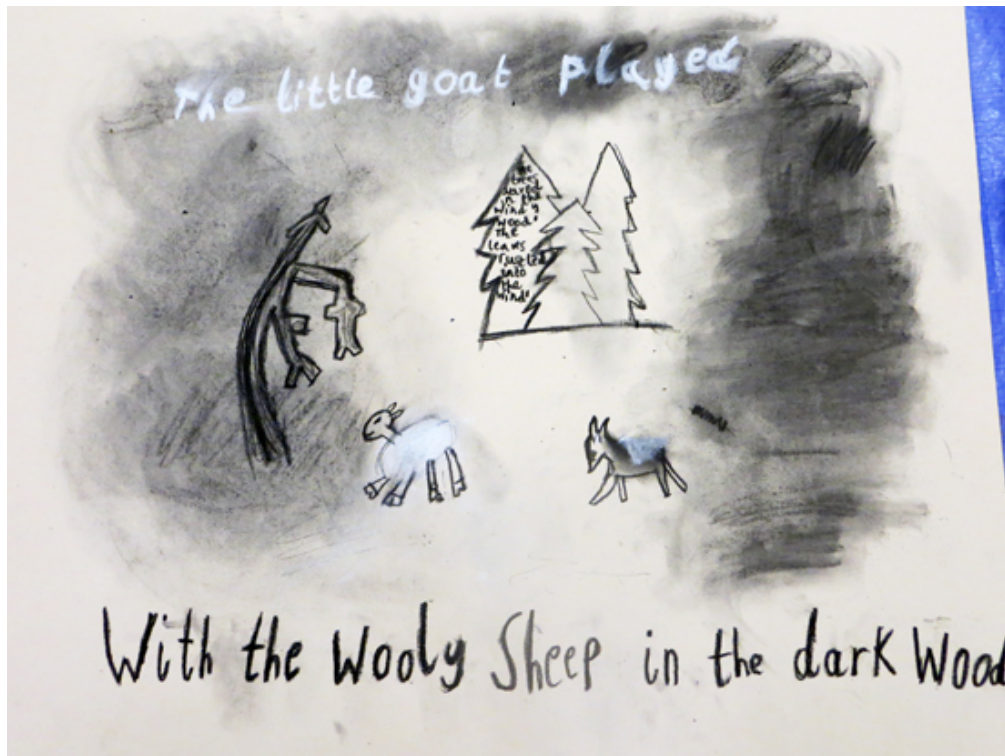 The little goat played
the
trees
waved
in the
wind y
wood"
the
leavs
rustled
into
the
wind"
With the Wooly Sheep in the dark Wood